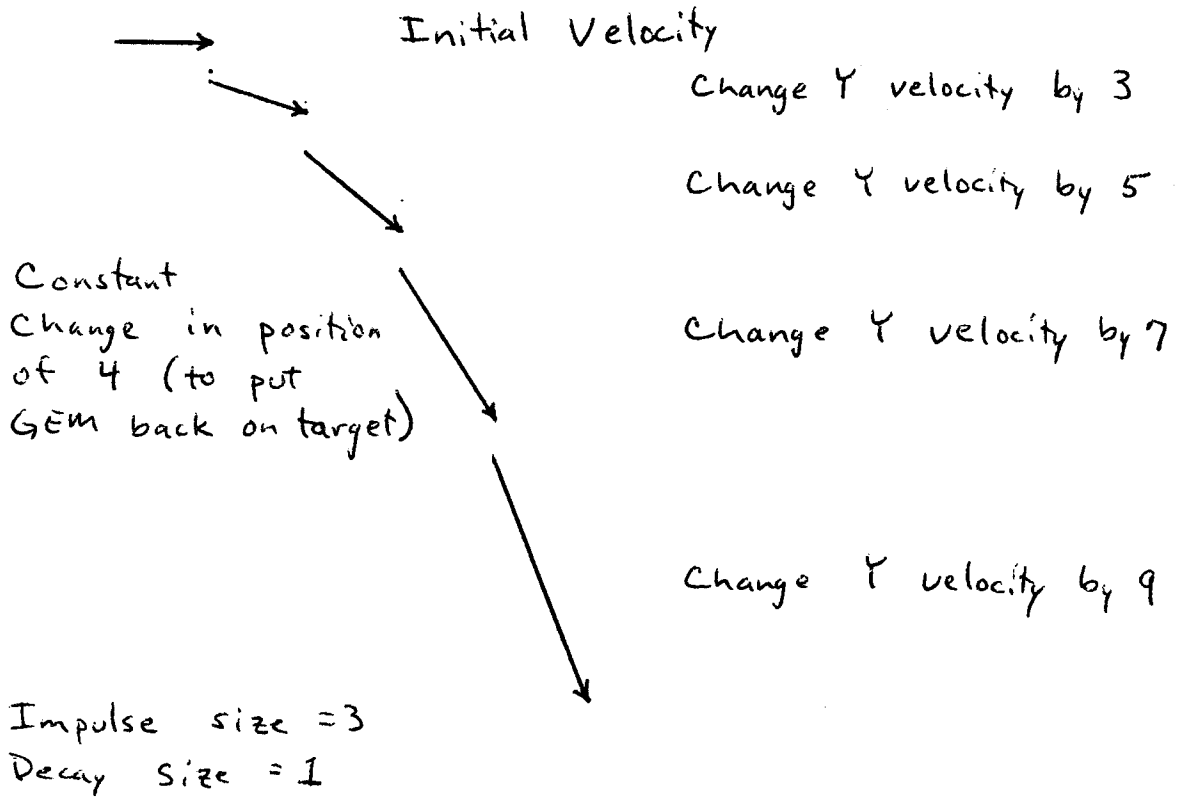 Initial Velocity
Change Y velocity by 3
Change Y velocity by 5
Constant
Change in position
of 4 (to put
GEM back on target)
Change Y velocity by 7
Change Y velocity by 9
Impulse size = 3
Decay size = 1